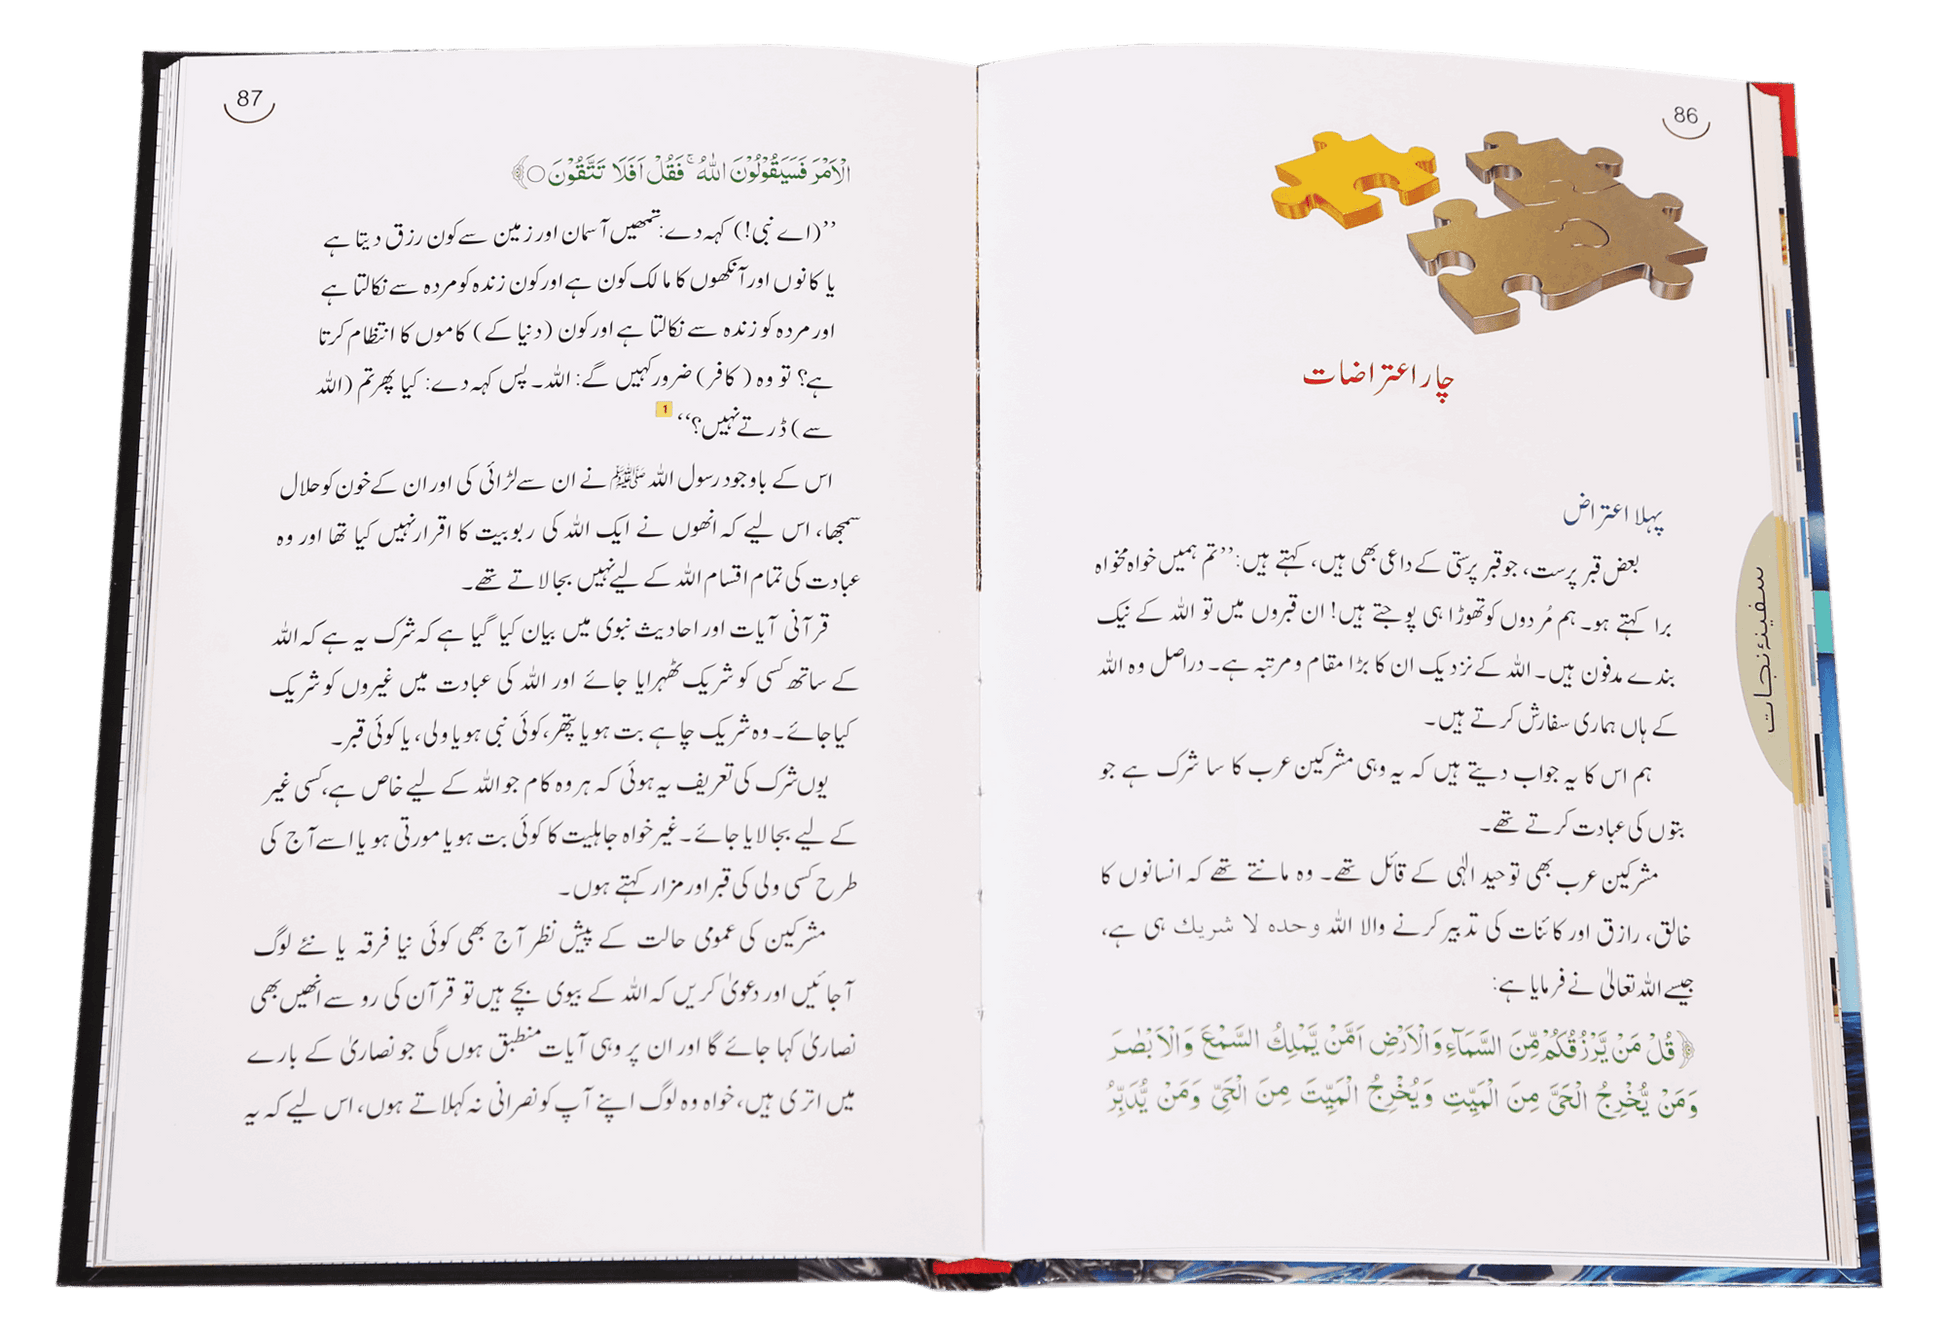 86
چار اعتراضات
پہلا اعتراض
بعض قبر پرست، جو قبر پرستی کے داعی بھی ہیں، کہتے ہیں: ’’تم ہمیں خواہ مخواہ
برا کہتے ہو۔ ہم مُردوں کو تھوڑا ہی پوجتے ہیں! ان قبروں میں تو اللہ کے نیک
بندے مدفون ہیں۔ اللہ کے نزدیک ان کا بڑا مقام و مرتبہ ہے۔ دراصل وہ اللہ
کے ہاں ہماری سفارش کرتے ہیں۔
ہم اس کا یہ جواب دیتے ہیں کہ یہ وہی مشرکین عرب کا سا شرک ہے جو
بتوں کی عبادت کرتے تھے۔
مشرکین عرب بھی توحید الٰہی کے قائل تھے۔ وہ مانتے تھے کہ انسانوں کا
خالق، رازق اور کائنات کی تدبیر کرنے والا اللہ وحدہ لا شریك ہی ہے،
جیسے اللہ تعالیٰ نے فرمایا ہے:
﴿قُلْ مَنْ يَّرْزُقُكُمْ مِّنَ السَّمَآءِ وَالْاَرْضِ اَمَّنْ يَّمْلِكُ السَّمْعَ وَالْاَبْصٰرَ
وَمَنْ يُّخْرِجُ الْحَىَّ مِنَ الْمَيِّتِ وَيُخْرِجُ الْمَيِّتَ مِنَ الْحَىِّ وَمَنْ يُّدَبِّرُ
سفینۂ نجات
87
الْاَمْرَ فَسَيَقُوْلُوْنَ اللّٰهُ ۚ فَقُلْ اَفَلَا تَتَّقُوْنَ ○﴾
’’(اے نبی!) کہہ دے: تمھیں آسمان اور زمین سے کون رزق دیتا ہے
یا کانوں اور آنکھوں کا مالک کون ہے اور کون زندہ کو مردہ سے نکالتا ہے
اور مردہ کو زندہ سے نکالتا ہے اور کون (دنیا کے) کاموں کا انتظام کرتا
ہے؟ تو وہ (کافر) ضرور کہیں گے: اللہ۔ پس کہہ دے: کیا پھر تم (اللہ
سے) ڈرتے نہیں؟‘‘ 1
اس کے باوجود رسول اللہ ﷺ نے ان سے لڑائی کی اور ان کے خون کو حلال
سمجھا، اس لیے کہ انھوں نے ایک اللہ کی ربوبیت کا اقرار نہیں کیا تھا اور وہ
عبادت کی تمام اقسام اللہ کے لیے نہیں بجا لاتے تھے۔
قرآنی آیات اور احادیث نبوی میں بیان کیا گیا ہے کہ شرک یہ ہے کہ اللہ
کے ساتھ کسی کو شریک ٹھہرایا جائے اور اللہ کی عبادت میں غیروں کو شریک
کیا جائے۔ وہ شریک چاہے بت ہو یا پتھر، کوئی نبی ہو یا ولی، یا کوئی قبر۔
یوں شرک کی تعریف یہ ہوئی کہ ہر وہ کام جو اللہ کے لیے خاص ہے، کسی غیر
کے لیے بجا لایا جائے۔ غیر خواہ جاہلیت کا کوئی بت ہو یا مورتی ہو یا اسے آج کی
طرح کسی ولی کی قبر اور مزار کہتے ہوں۔
مشرکین کی عمومی حالت کے پیش نظر آج بھی کوئی نیا فرقہ یا نئے لوگ
آجائیں اور دعویٰ کریں کہ اللہ کے بیوی بچے ہیں تو قرآن کی رو سے انھیں بھی
نصاریٰ کہا جائے گا اور ان پر وہی آیات منطبق ہوں گی جو نصاریٰ کے بارے
میں اتری ہیں، خواہ وہ لوگ اپنے آپ کو نصرانی نہ کہلاتے ہوں، اس لیے کہ یہ